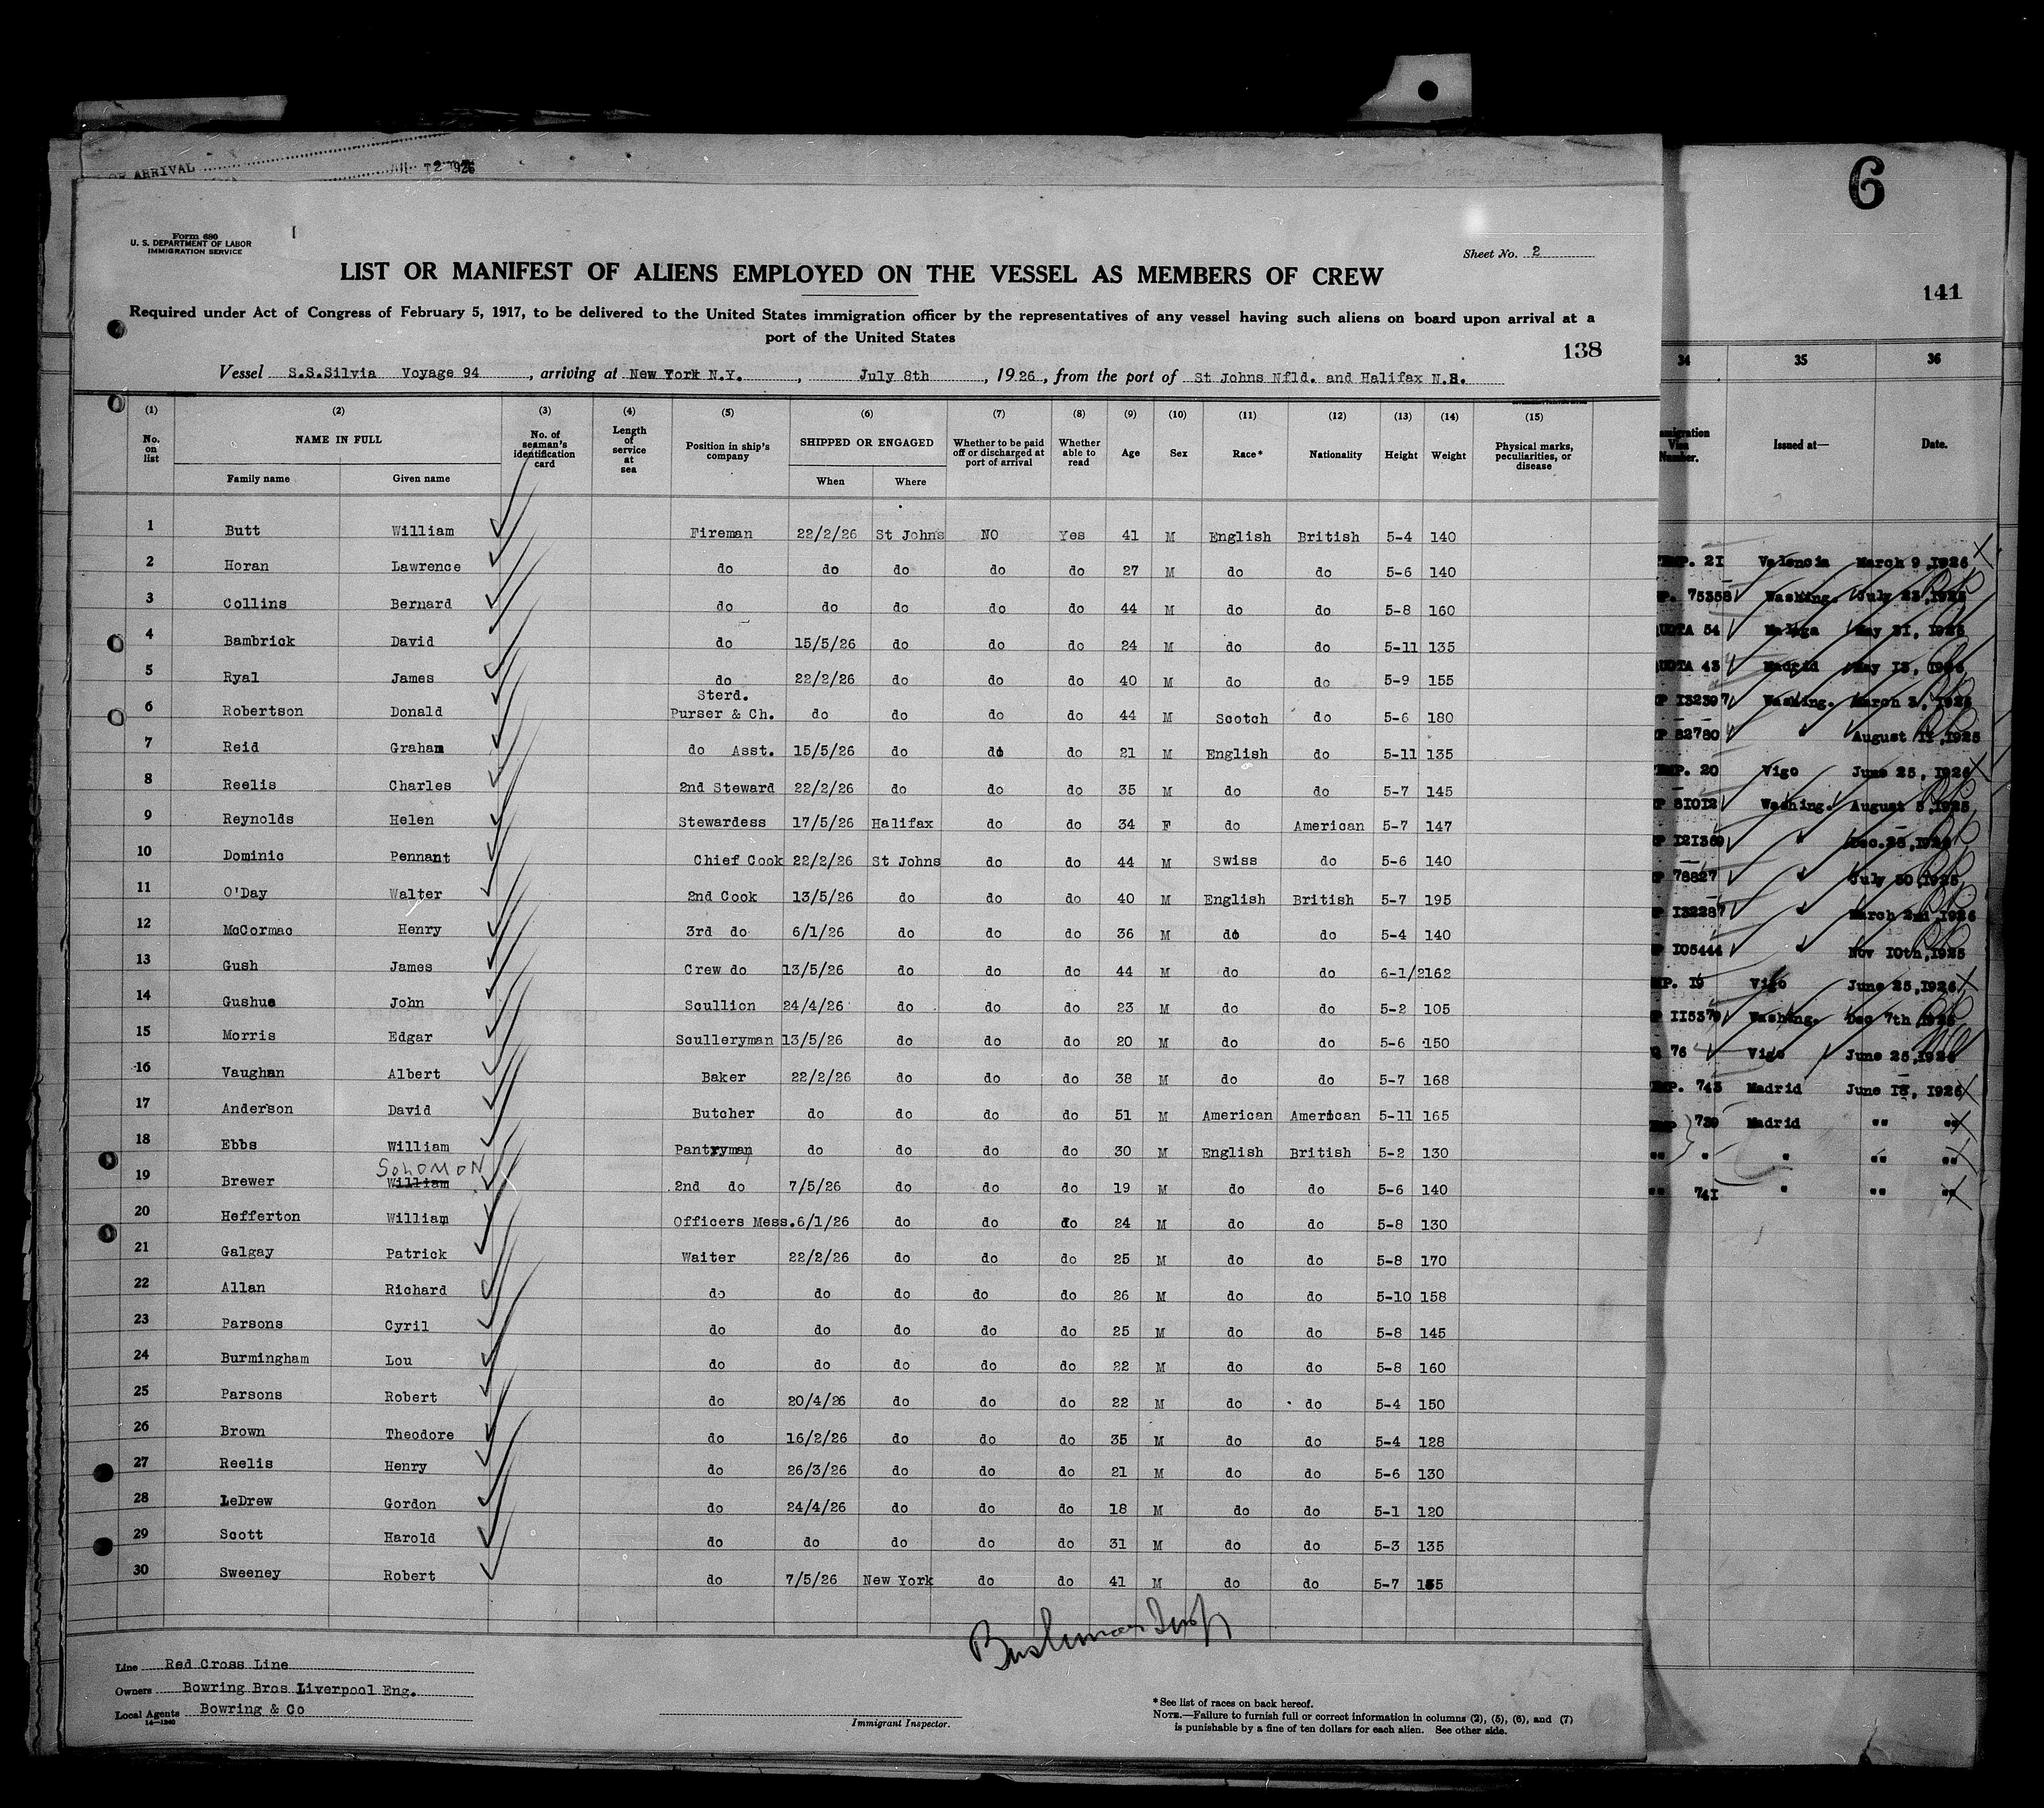 OF ARRIVAL
Form 680
U. S. DEPARTMENT OF LABOR
IMMIGRATION SERVICE
Sheet No. 2
LIST OR MANIFEST OF ALIENS EMPLOYED ON THE VESSEL AS MEMBERS OF CREW
Required under Act of Congress of February 5, 1917, to be delivered to the United States immigration officer by the representatives of any vessel having such aliens on board upon arrival at a
port of the United States
138
Vessel S.S.Silvia Voyage 94, arriving at New York N.Y., July 8th, 1926, from the port of St Johns Nfld. and Halifax N.S.
(1) (2) (3) (4) (5) (6) (7) (8) (9) (10) (11) (12) (13) (14) (15)
No. on list NAME IN FULL No. of seaman's identification card Length of service at sea Position in ship's company SHIPPED OR ENGAGED Whether to be paid off or discharged at port of arrival Whether able to read Age Sex Race* Nationality Height Weight Physical marks, peculiarities, or disease
Family name Given name When Where
1 Butt William Fireman 22/2/26 St Johns NO Yes 41 M English British 5-4 140
2 Horan Lawrence do do do do do 27 M do do 5-6 140
3 Collins Bernard do do do do do 44 M do do 5-8 160
4 Bambrick David do 15/5/26 do do do 24 M do do 5-11 135
5 Ryal James do 22/2/26 do do do 40 M do do 5-9 155
Sterd.
6 Robertson Donald Purser & Ch. do do do do 44 M Scotch do 5-6 180
7 Reid Graham do Asst. 15/5/26 do do do 21 M English do 5-11 135
8 Reelis Charles 2nd Steward 22/2/26 do do do 35 M do do 5-7 145
9 Reynolds Helen Stewardess 17/5/26 Halifax do do 34 F do American 5-7 147
10 Dominic Pennant Chief Cook 22/2/26 St Johns do do 44 M Swiss do 5-6 140
11 O'Day Walter 2nd Cook 13/5/26 do do do 40 M English British 5-7 195
12 McCormac Henry 3rd do 6/1/26 do do do 36 M do do 5-4 140
13 Gush James Crew do 13/5/26 do do do 44 M do do 6-1/2 162
14 Gushue John Scullion 24/4/26 do do do 23 M do do 5-2 105
15 Morris Edgar Sculleryman 13/5/26 do do do 20 M do do 5-6 150
16 Vaughan Albert Baker 22/2/26 do do do 38 M do do 5-7 168
17 Anderson David Butcher do do do do 51 M American American 5-11 165
18 Ebbs William Pantryman do do do do 30 M English British 5-2 130
SOLOMON
19 Brewer William 2nd do 7/5/26 do do do 19 M do do 5-6 140
20 Hefferton William Officers Mess. 6/1/26 do do do 24 M do do 5-8 130
21 Galgay Patrick Waiter 22/2/26 do do do 25 M do do 5-8 170
22 Allan Richard do do do do do 26 M do do 5-10 158
23 Parsons Cyril do do do do do 25 M do do 5-8 145
24 Burmingham Lou do do do do do 22 M do do 5-8 160
25 Parsons Robert do 20/4/26 do do do 22 M do do 5-4 150
26 Brown Theodore do 16/2/26 do do do 35 M do do 5-4 128
27 Reelis Henry do 26/3/26 do do do 21 M do do 5-6 130
28 LeDrew Gordon do 24/4/26 do do do 18 M do do 5-1 120
29 Scott Harold do do do do do 31 M do do 5-3 135
30 Sweeney Robert do 7/5/26 New York do do 41 M do do 5-7
Line Red Cross Line
Owners Bowring Bros Liverpool Eng.
Local Agents Bowring & Co
14—1240
Immigrant Inspector.
*See list of races on back hereof.
NOTE.—Failure to furnish full or correct information in columns (2), (5), (6), and (7)
is punishable by a fine of ten dollars for each alien. See other side.
6
141
34 35 36
Visa Number. Issued at— Date.
21 Valencia March 9,1926
75358 Washing. July 23,1925
54 Malaga May 31, 1926
43 Madrid May 13, 1926
132397 Washing. March 3, 1926
82780 " August 11,1925
20 Vigo June 25, 1926
81012 Washing. August 5,1925
121369 " Dec.
78827 " July 30,1925
132287 " March 2nd,1926
105444 " Nov 10th,1925
19 Vigo June 25,1926
115379 Washing. Dec 7th,1925
76 Vigo June 25,1926
743 Madrid June 18, 1926
739 Madrid "" ""
"" " " "" ""
"" 741 " "" ""